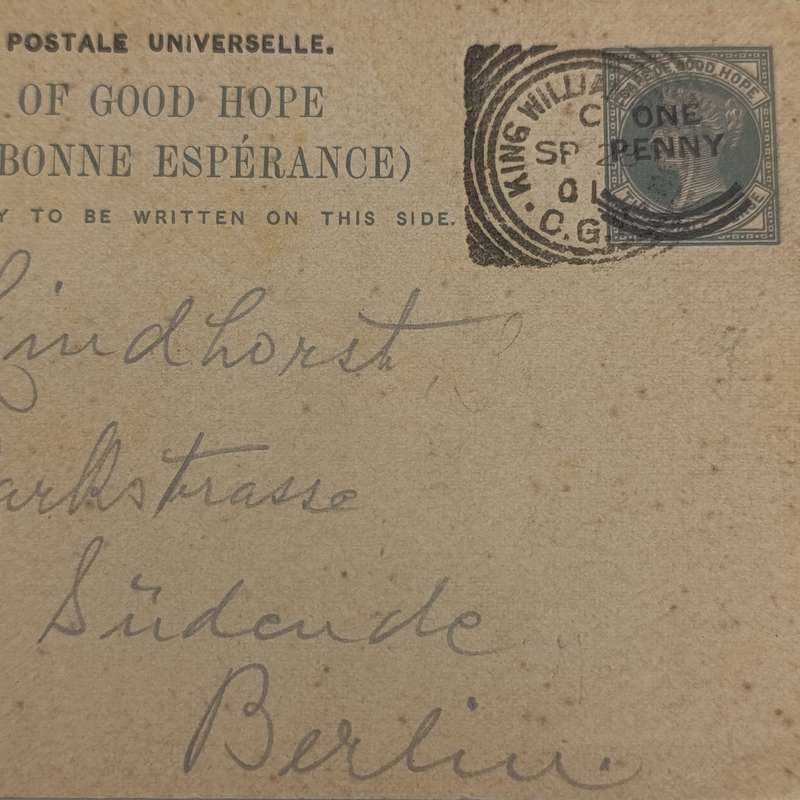 POSTALE UNIVERSELLE.
OF GOOD HOPE
BONNE ESPÉRANCE)
Y TO BE WRITTEN ON THIS SIDE.
KING WILLIA
C
SP 2
01
C.G.
DE GOOD HOPE
ONE
PENNY
Lindhorst,
Parkstrasse
Südende
Berlin.